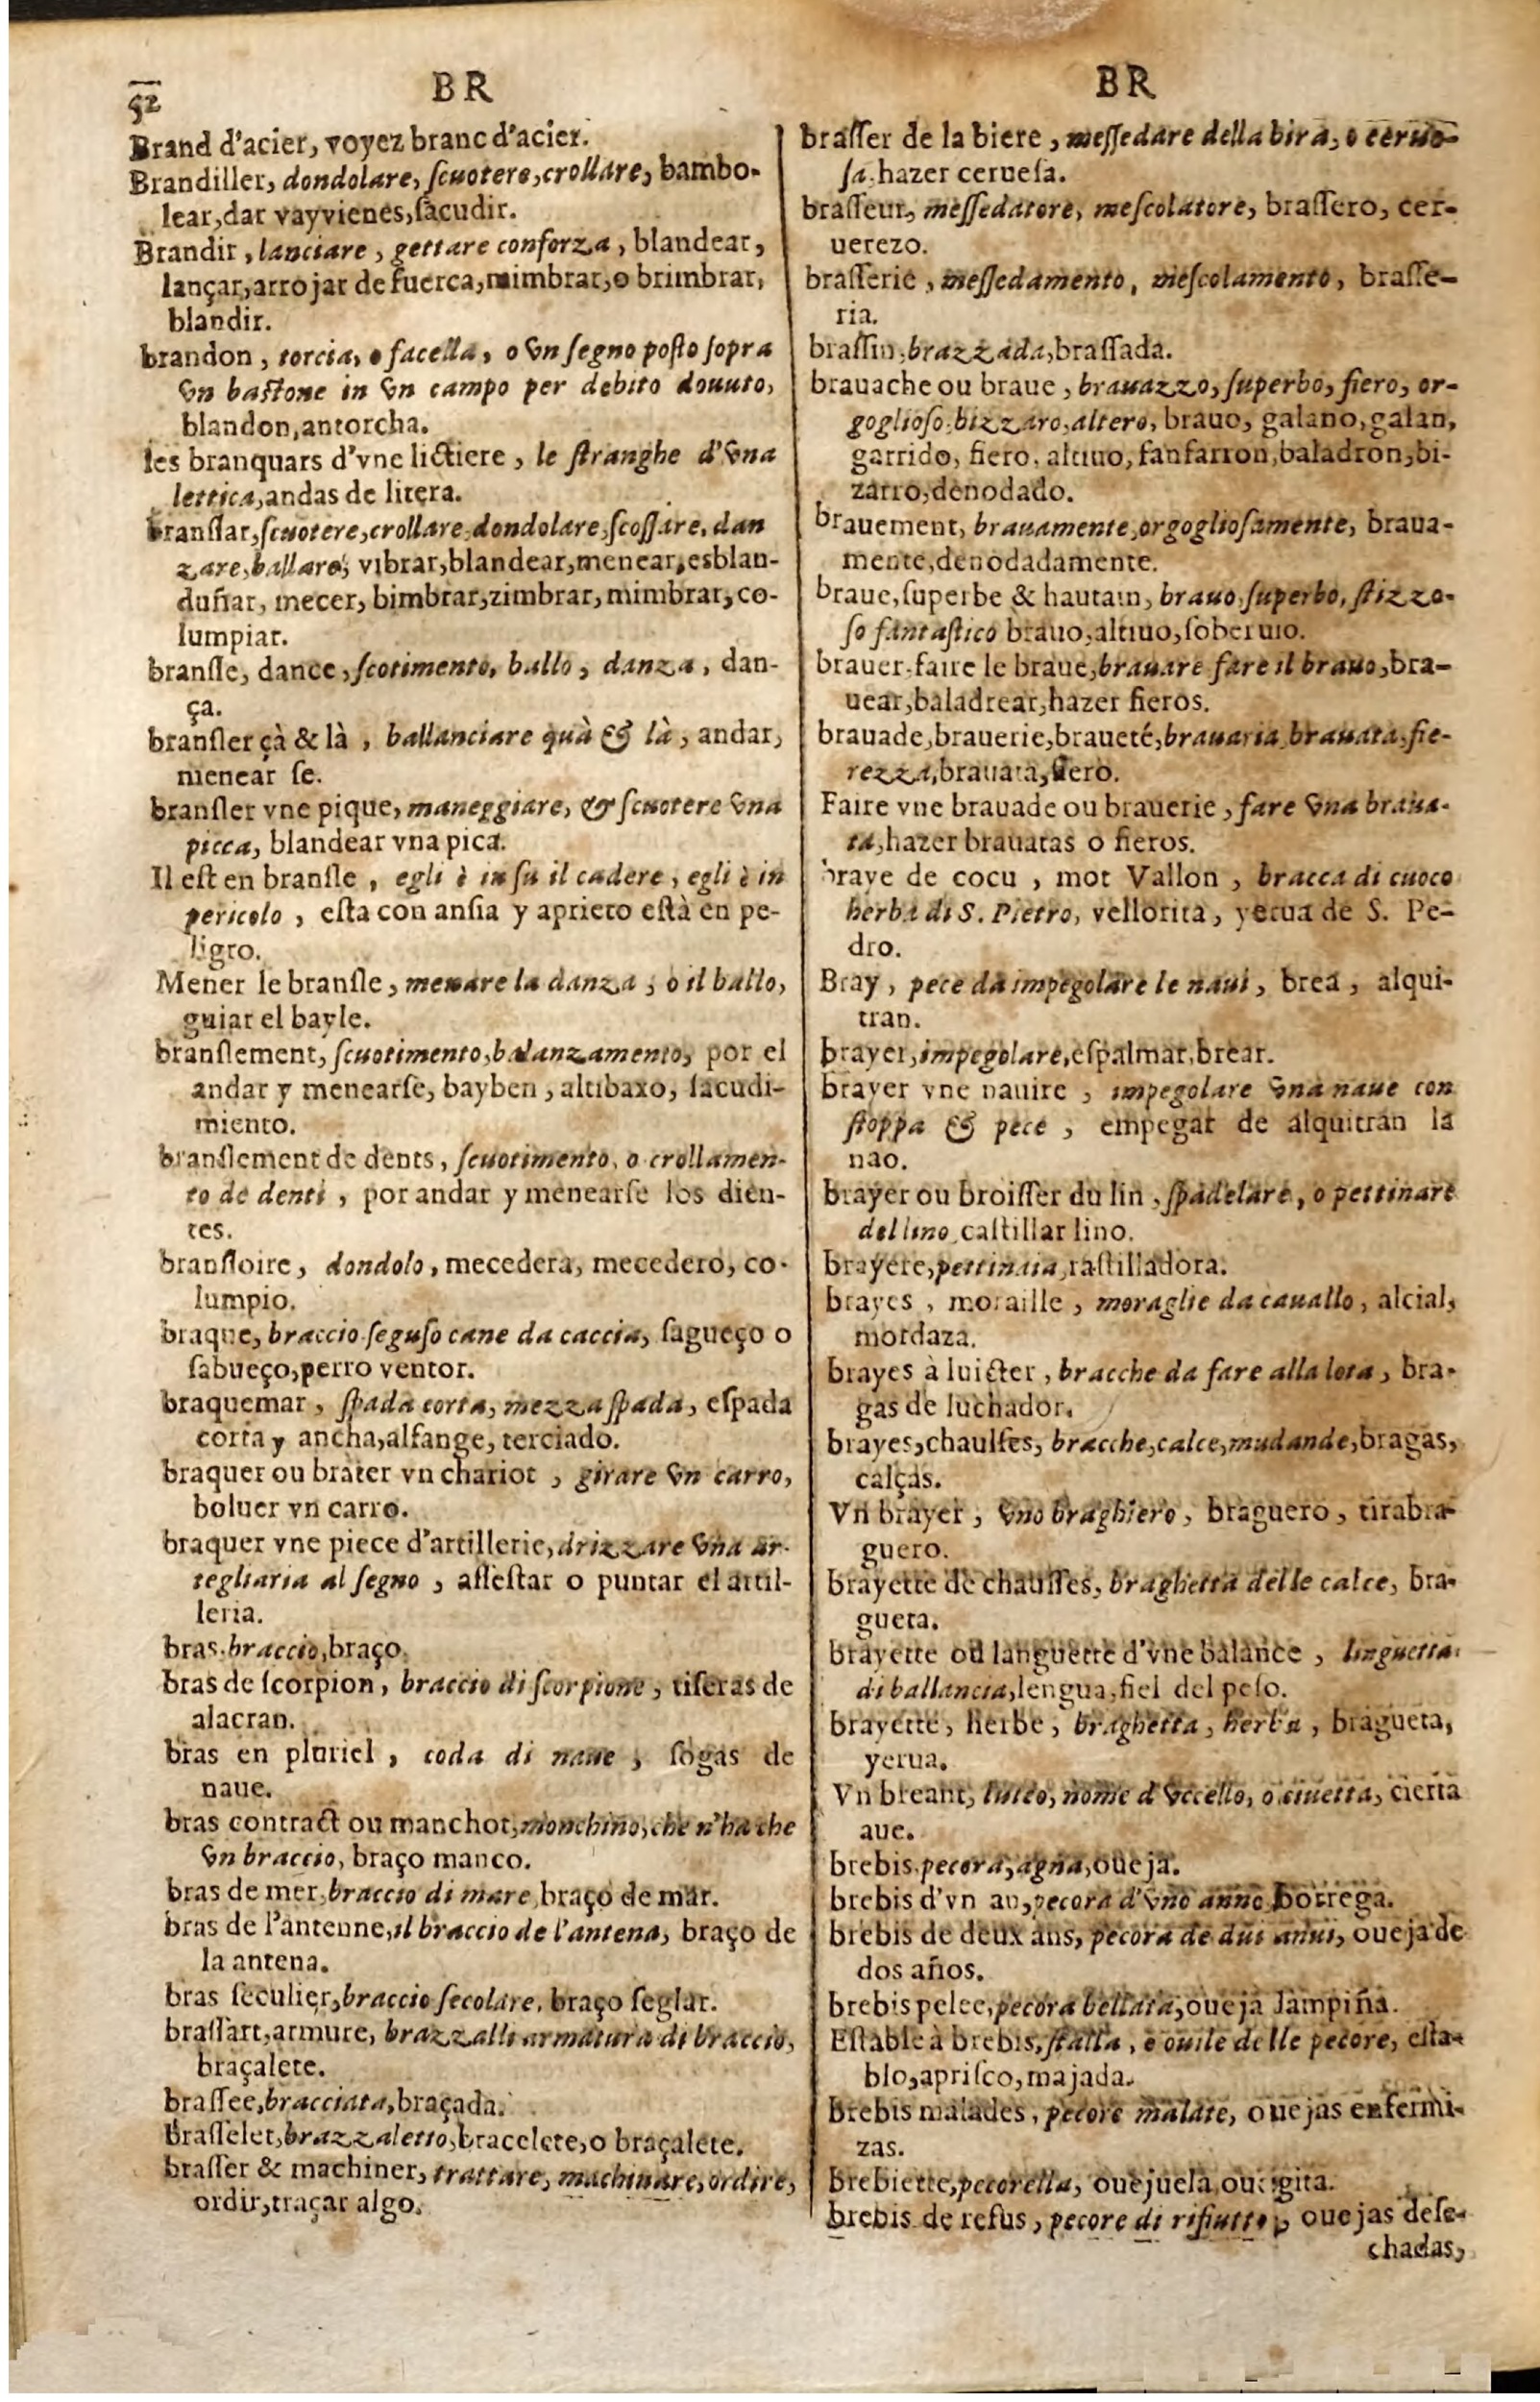 52
BR
BR
Brand d'acier, voyez branc d'acier.
Brandiller, dondolare, ſcuotere, crollare, bambo-
lear, dar vayvienes, ſacudir.
Brandir, lanciare, gettare con forza, blandear,
lançar, arrojar de fuerca, mimbrar, o brimbrar,
blandir.
brandon, torcia, o facella, o vn ſegno poſto ſopra
vn baſtone in vn campo per debito douuto,
blandon, antorcha.
les branquars d'vne lictiere, le ſtranghe d'vna
lettica, andas de litera.
branſlar, ſcuotere, crollare, dondolare, ſcoſſare, dan
zare, ballare, vibrar, blandear, menear, esblan-
duñar, mecer, bimbrar, zimbrar, mimbrar, co-
lumpiar.
branſle, dance, ſcotimento, ballo, danza, dan-
ça.
branſler çà & là, ballanciare quà & là, andar,
menear ſe.
branſler vne pique, maneggiare, & ſcuotere vna
picca, blandear vna pica.
Il eſt en branſle, egli è in ſu il cadere, egli è in
pericolo, eſta con anſia y aprieto eſtà en pe-
ligro.
Mener le branſle, menare la danza, o il ballo,
guiar el bayle.
branſlement, ſcuotimento, balanzamento, por el
andar y menearſe, bayben, altibaxo, ſacudi-
miento.
branſlement de dents, ſcuotimento, o crollamen-
to de denti, por andar y menearſe los dien-
tes.
branſloire, dondolo, mecedera, mecedero, co-
lumpio.
braque, braccio ſeguſo cane da caccia, ſagueço o
ſabueço, perro ventor.
braquemar, ſpada corta, mezza ſpada, eſpada
corta y ancha, alfange, terciado.
braquer ou brater vn chariot, girare vn carro,
boluer vn carro.
braquer vne piece d'artillerie, drizzare vna ar-
tegliaria al ſegno, aſſeſtar o puntar el artil-
leria.
bras, braccio, braço.
bras de ſcorpion, braccio di ſcorpione, tiſeras de
alacran.
bras en pluriel, coda di naue, ſogas de
naue.
bras contract ou manchot, monchino, che n'ha che
vn braccio, braço manco.
bras de mer, braccio di mare, braço de mar.
bras de l'antenne, il braccio de l'antena, braço de
la antena.
bras ſeculier, braccio ſecolare, braço ſeglar.
braſſart, armure, brazzalli armatura di braccio,
braçalete.
braſſee, bracciata, braçada.
Braſſelet, brazzaletto, bracelete, o braçalete.
braſſer & machiner, trattare, machinare, ordire,
ordir, traçar algo.
braſſer de la biere, meſſedare della bira, o ceruo-
ſa, hazer cerueſa.
braſſeur, meſſedatore, meſcolatore, braſſero, cer-
uerezo.
braſſerie, meſſedamento, meſcolamento, braſſe-
ria.
braſſin, brazzada, braſſada.
brauache ou braue, brauazzo, ſuperbo, fiero, or-
goglioſo, bizzaro, altero, brauo, galano, galan,
garrido, fiero, altiuo, fanfarron, baladron, bi-
zarro, denodado.
brauement, brauamente, orgoglioſamente, braua-
mente, denodadamente.
braue, ſuperbe & hautain, brauo, ſuperbo, ſtizzo-
ſo fantaſtico brauo, altiuo, ſoberuio.
brauer, faire le braue, brauare fare il brauo, bra-
uear, baladrear, hazer fieros.
brauade, brauerie, braueté, brauaria, brauata, fie-
rezza, brauata, fiero.
Faire vne brauade ou brauerie, fare vna braua-
ta, hazer brauatas o fieros.
braye de cocu, mot Vallon, bracca di cuoco
herba di S. Pietro, vellorita, yerua de S. Pe-
dro.
Bray, pece da impegolare le naui, brea, alqui-
tran.
brayer, impegolare, eſpalmar, brear.
brayer vne nauire, impegolare vna naue con
ſtoppa & pece, empegar de alquitran la
nao.
brayer ou broiſſer du lin, ſpadelare, o pettinare
del lino, caſtillar lino.
brayere, pettinaia, raſtilladora.
brayes, moraille, moraglie da cauallo, alcial,
mordaza.
brayes à luicter, bracche da fare alla lota, bra-
gas de luchador.
brayes, chauſſes, bracche, calce, mudande, bragas,
calças.
Vn brayer, vno braghiero, braguero, tirabra-
guero.
brayette de chauſſes, braghetta delle calce, bra-
gueta.
brayette ou languette d'vne balance, linguetta
di ballancia, lengua, fiel del peſo.
brayette, herbe, braghetta, herba, bragueta,
yerua.
Vn breant, luteo, nome d'vccello, o ciuetta, cierta
aue.
brebis, pecora, agna, oueja.
brebis d'vn an, pecora d'vno anno, borrega.
brebis de deux ans, pecora de dui anni, oueja de
dos años.
brebis pelee, pecora bellata, oueja lampiña.
Eſtable à brebis, ſtalla, e ouile delle pecore, eſta-
blo, apriſco, majada.
Brebis malades, pecore malate, ouejas enfermi-
zas.
Brebiette, pecorella, ouejuela, ouegita.
brebis de refus, pecore di rifiutto, ouejas deſe-
chadas,